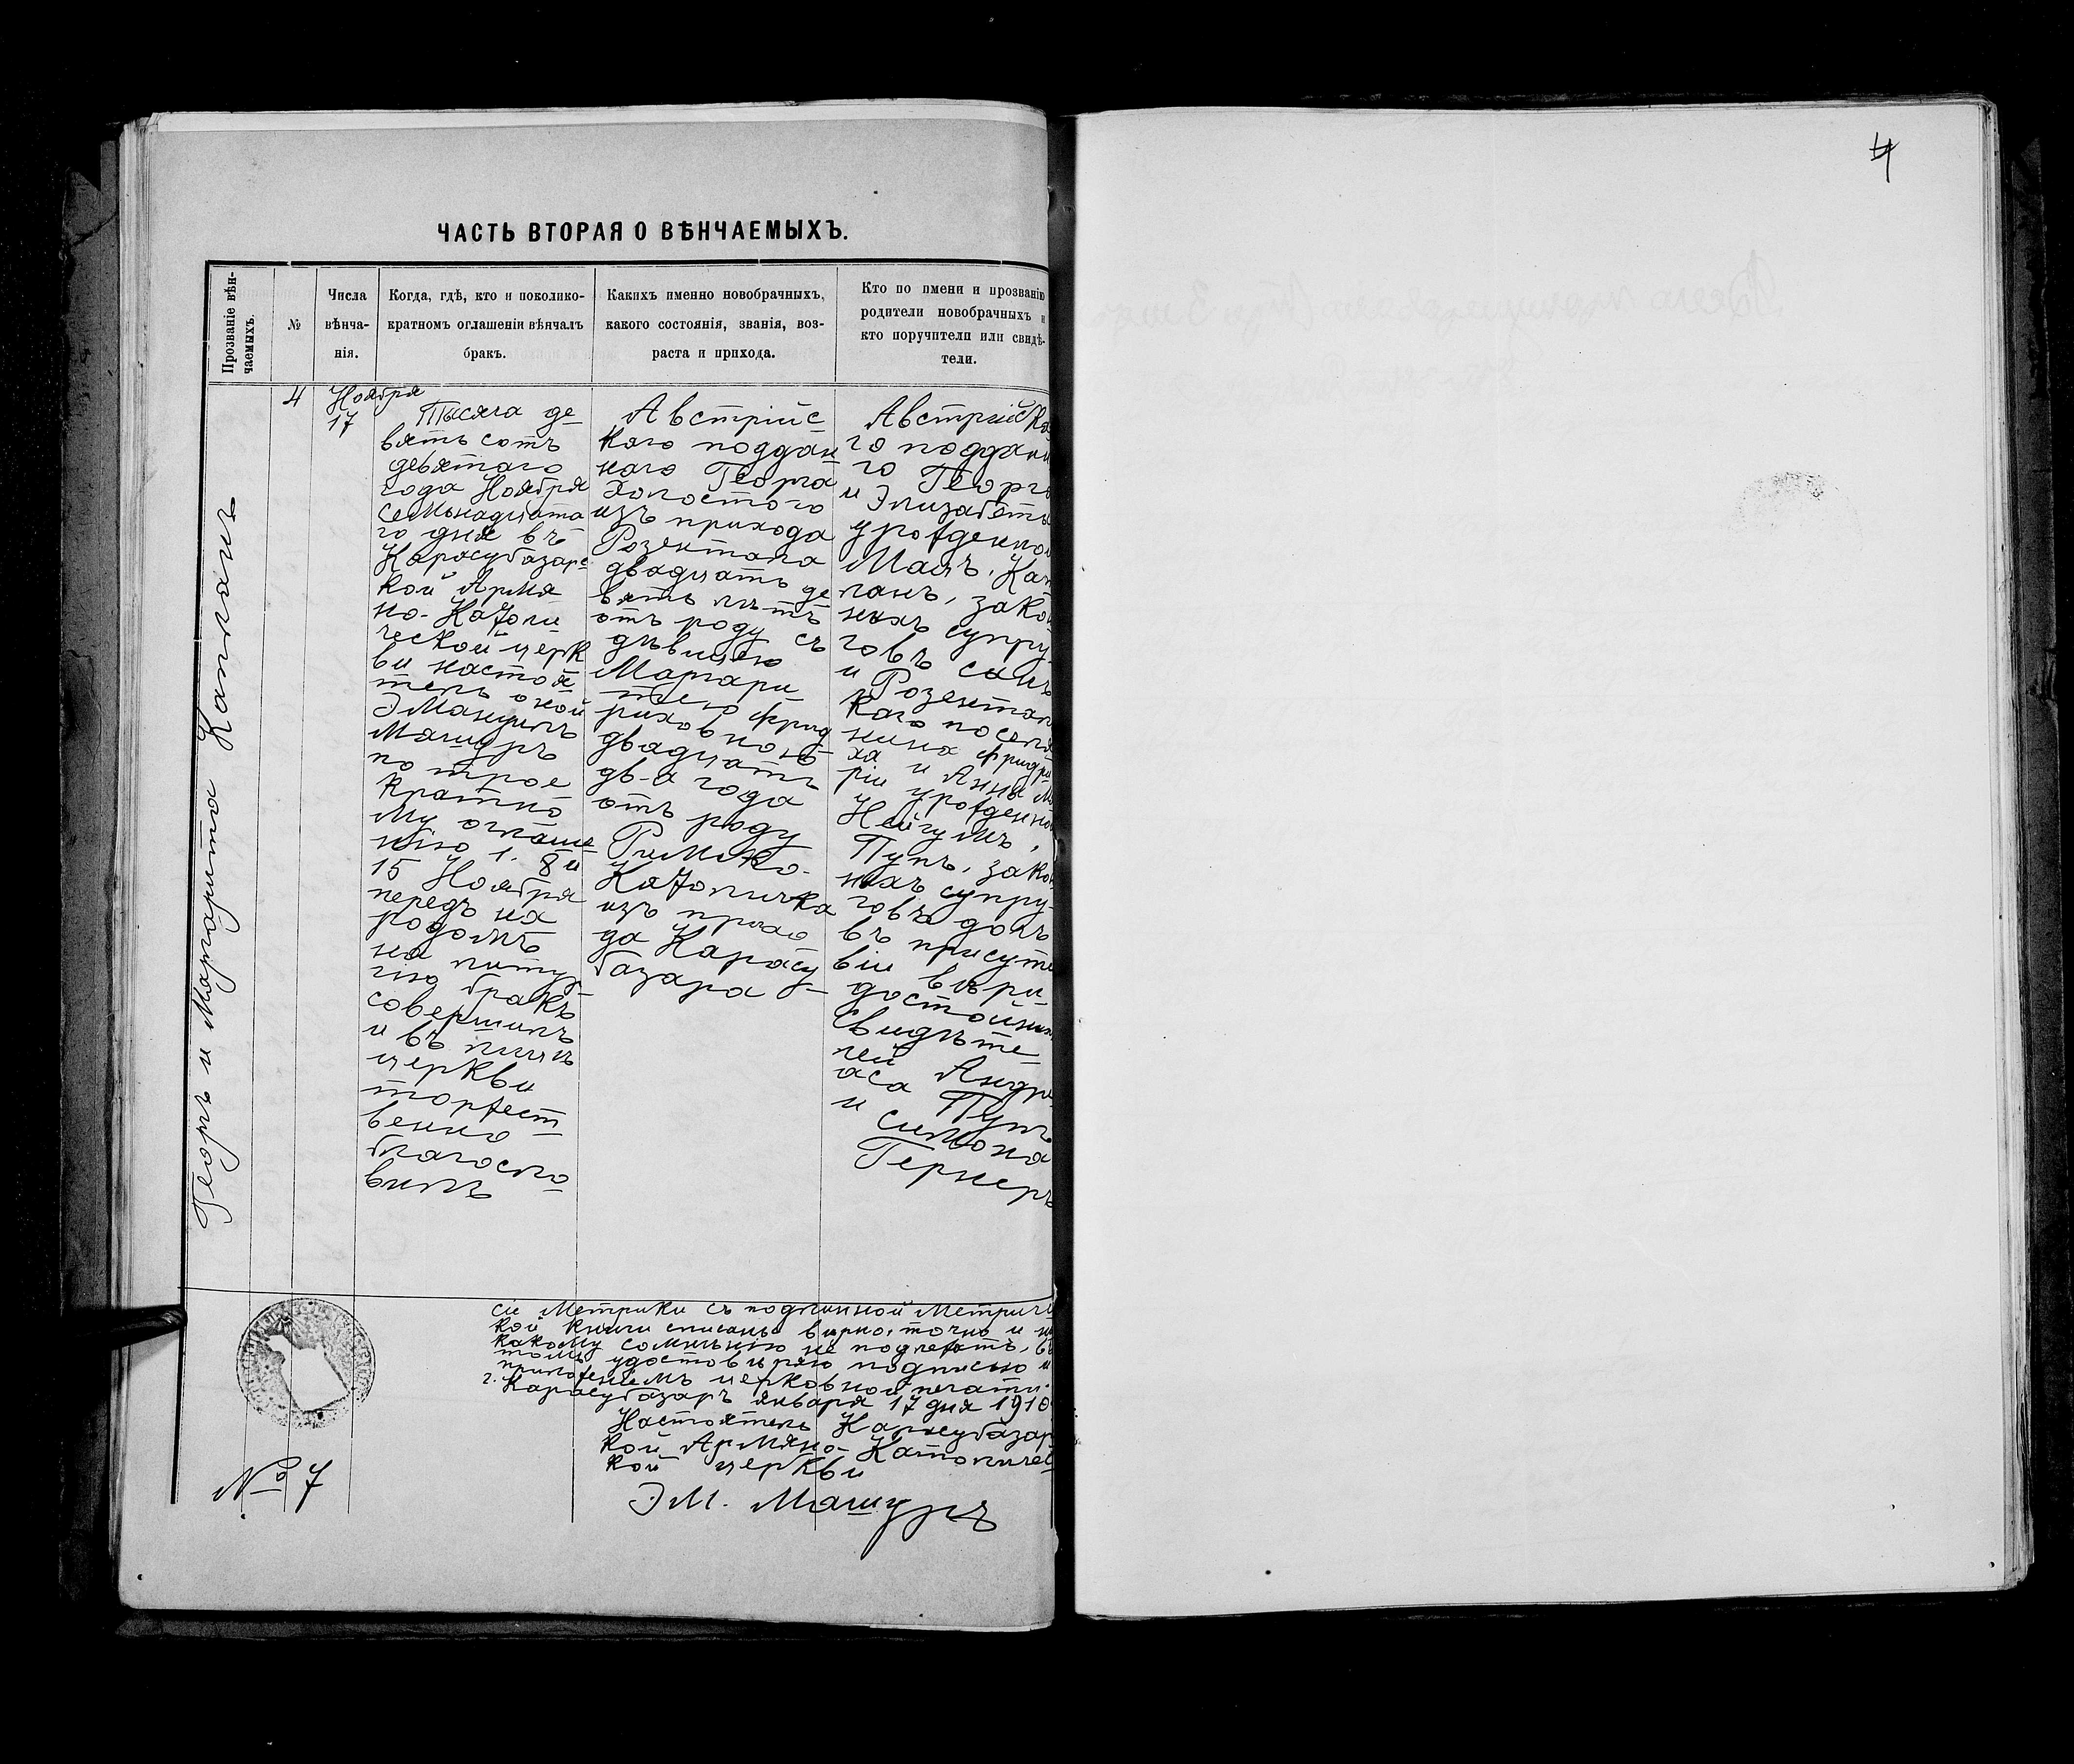 4
ЧАСТЬ ВТОРАЯ О ВѢНЧАЕМЫХЪ.
Прозваніе вѣн-
чаемыхъ.
№
Числа
вѣнча-
нія.
Когда, гдѣ, кто и поколико-
кратномъ оглашеніи вѣнчалъ
бракъ.
Какихъ именно новобрачныхъ,
какого состоянія, званія, воз-
раста и прихода.
Кто по имени и прозванію
родители новобрачныхъ и
кто поручители или свидѣ-
тели.
Георгъ и Маргарита Капланъ
4
Ноября
17
Тысяча де-
вятьсотъ
девятаго
года Ноября
семьнадцата
го дня въ
Карасубазарс
кой Армя
но-Каѳоли
ческой церк
ви настоя
тель оной
Эмануилъ
Машуръ
по трое
кратно
му оглаше
нію 1. 8 и
15 Ноября
передъ на
родомъ
на литур-
гію бракъ
совершилъ
и въ лицѣ
церкви
торжест
венно-
благосло-
вилъ
Австрійс
каго поддан
наго Георга
Холостого
изъ прихода
Розентала
двадцать де
вять лѣтъ
отъ роду съ
дѣвицею
Маргари-
тею Фрид
риховною
двадцать
два года
отъ роду
Римско-
Каѳоличка
изъ прихо
да Карасу-
базара
Австрійска
го поддан
го Георга
и Элизабеты
урожденной
Маиъ, Кап
ланъ, закон
ныхъ супру-
говъ сынъ
и Розентал
каго поселя
нина Фридри
ха и Анны Ма
ріи урожденной
Нейгумъ,
Пупъ, закон
ныхъ супру-
говъ дочь
въ присутс
віи вѣри-
достойных
свидѣте-
лей Андре
аса Пупъ
и Симона
Гернеръ
Сіи Метрики съ подлинной Метричес
кой книги списаны вѣрно, точно и ни
какому сомнѣнію не подлежатъ, въ
томъ удостовѣряю подписью и
приложеніемъ церковной печати.
г. Карасубазаръ января 17 дня 1910
Настоятель Карасубазар
кой Армяно-Католичес
кой церкви
ЭМ. Машуръ
№ 7